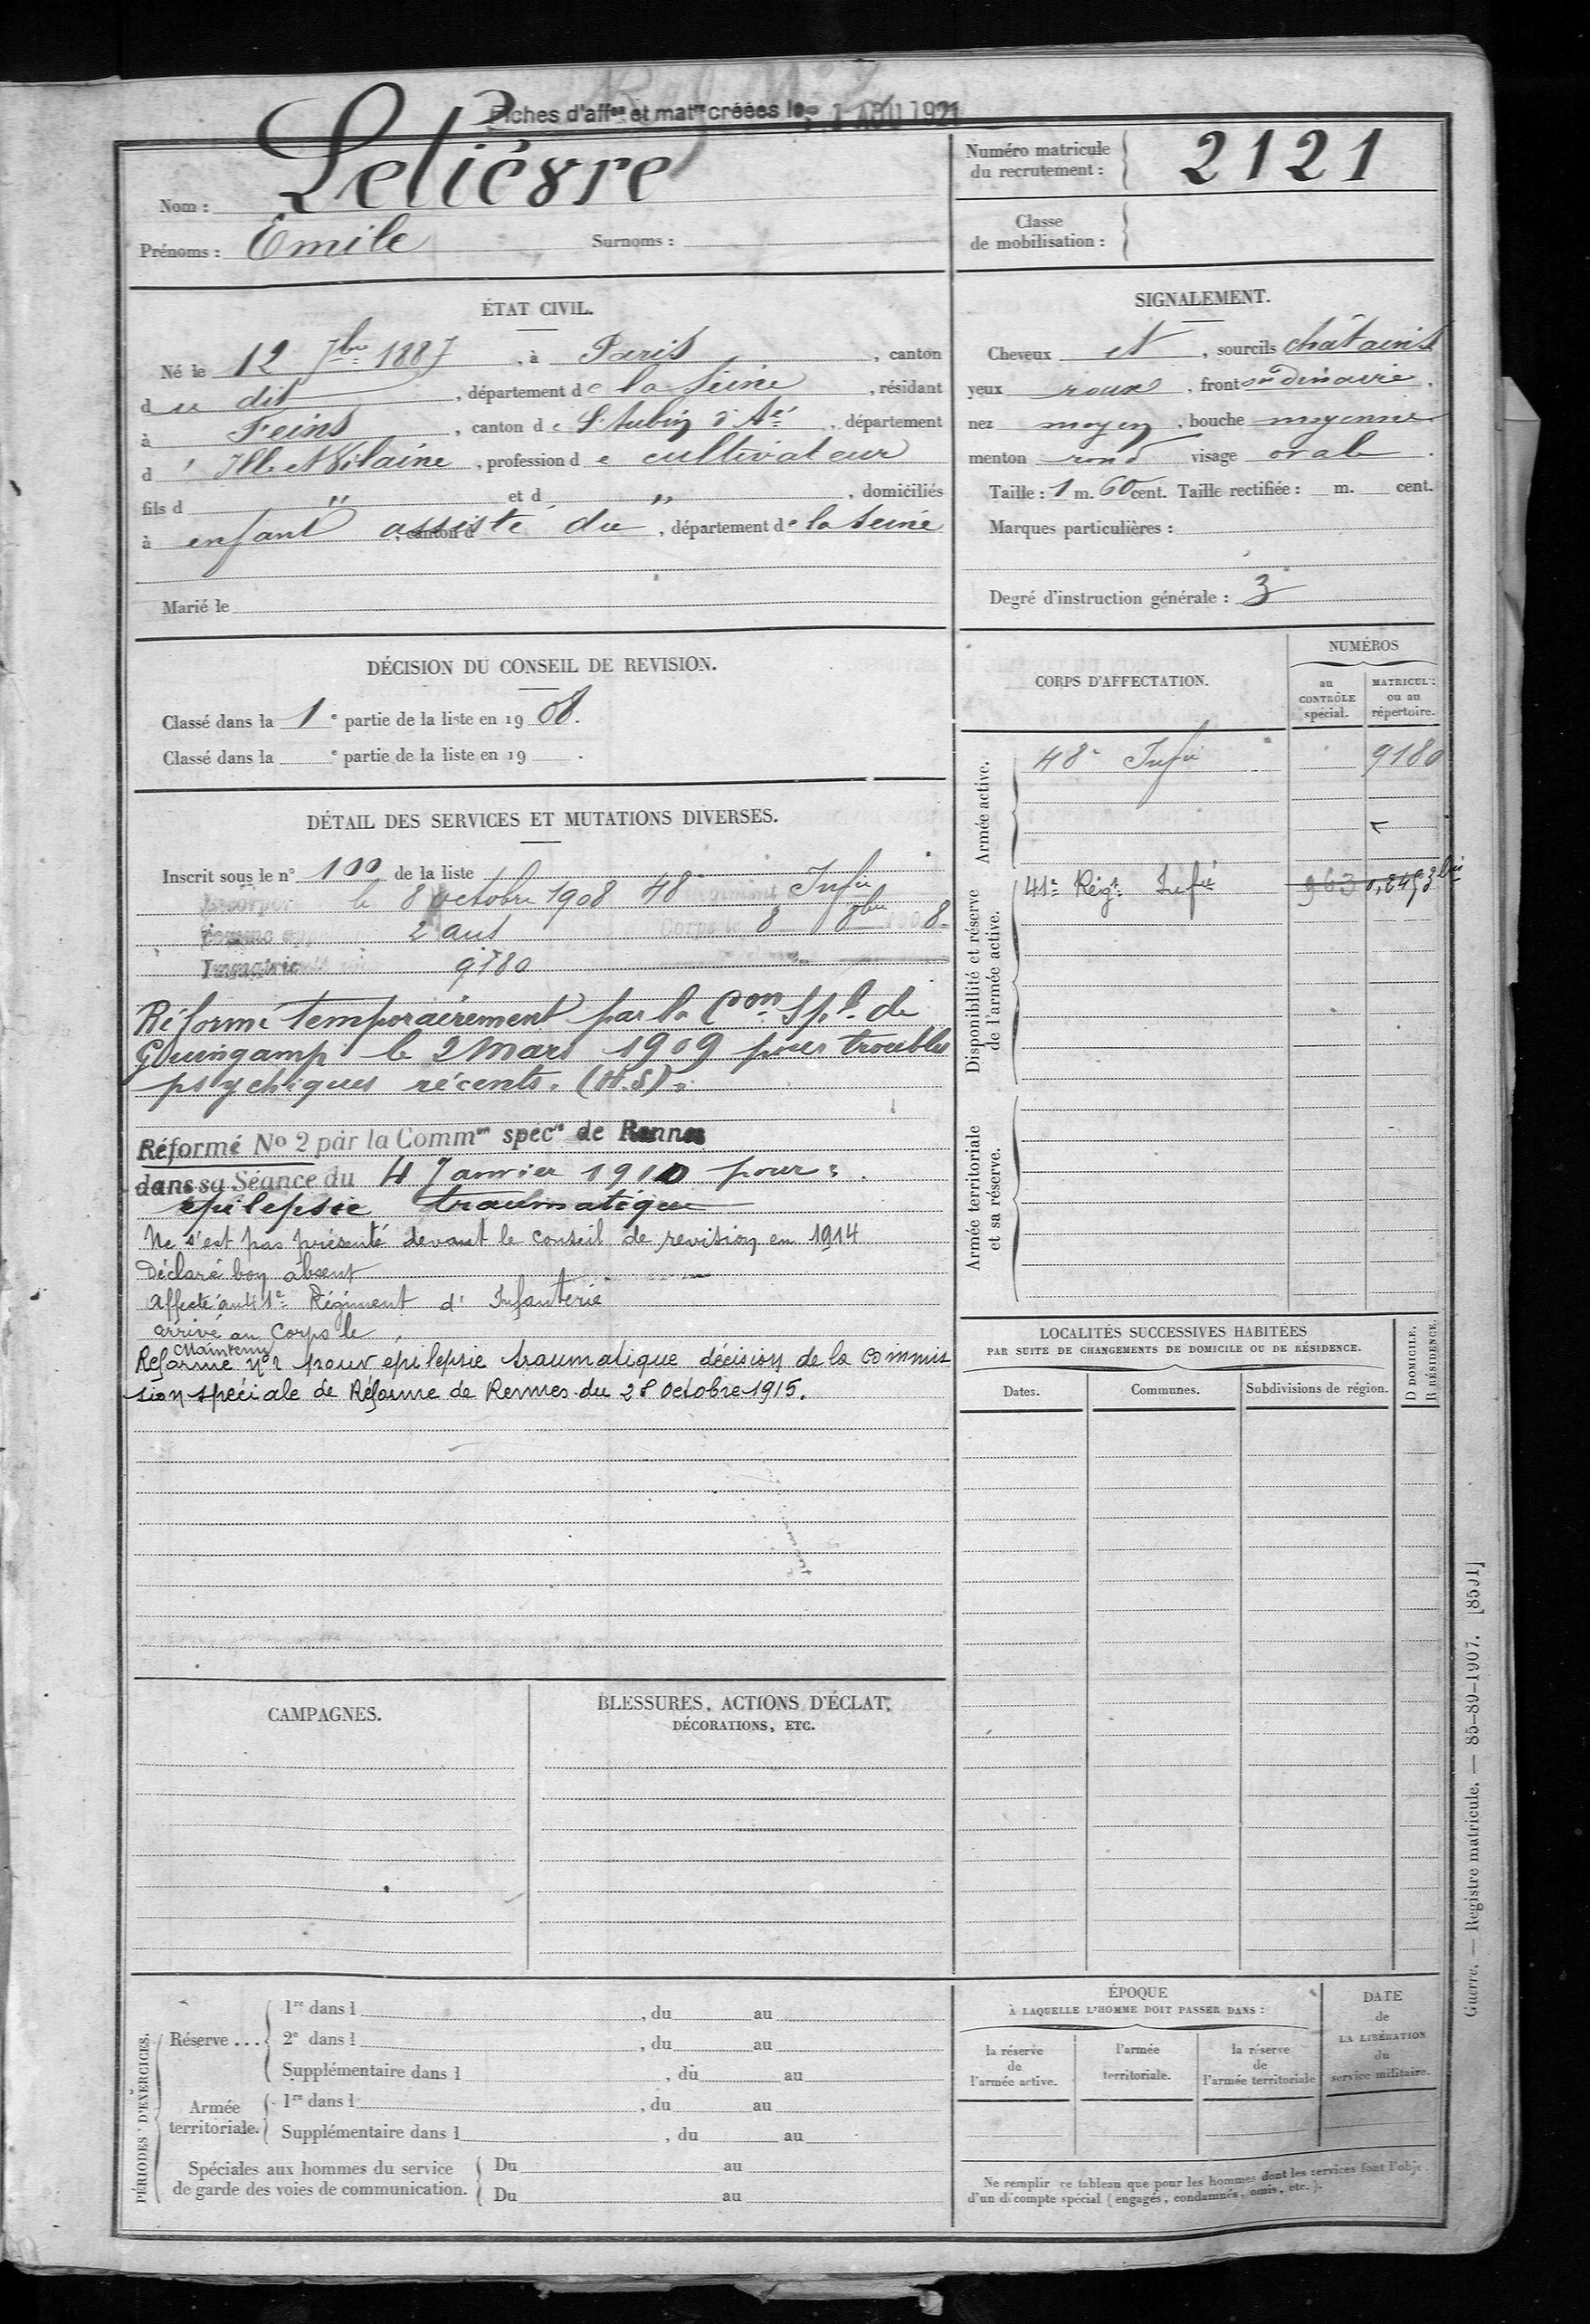 Fiches d'affon et matre créées le 1 AOU 1921
Nom : Lelièvre
Prénoms : Emile Surnoms :
Numéro matricule
du recrutement : 2121
Classe
de mobilisation :
ÉTAT CIVIL.
Né le 12 7bre 1887, à Paris, canton
du dit, département de la Seine, résidant
à Feins, canton de St Aubin d'Aé, département
d'Ille et Vilaine, profession de cultivateur
fils d " et d ", domiciliés
à enfant assisté du, canton d, département de la Seine
Marié le
SIGNALEMENT.
Cheveux et, sourcils châtains
yeux roux, front ordinaire,
nez moyen, bouche moyenne
menton rond visage ovale.
Taille : 1 m. 60 cent. Taille rectifiée : m. cent.
Marques particulières :
Degré d'instruction générale : 3
DÉCISION DU CONSEIL DE REVISION.
Classé dans la 1e partie de la liste en 1908.
Classé dans la e partie de la liste en 19 .
DÉTAIL DES SERVICES ET MUTATIONS DIVERSES.
Inscrit sous le n° 100 de la liste
le 8 octobre 1908 48e Infie
2 ans Corps le 8 8bre 1908
Immatriculé 9180
Réformé temporairement par la Con Sple de
Guingamp le 2 Mars 1909 pour troubles
psychiques récents. (H.S).
Réformé No 2 par la Common spéce de Rennes
dans sa Séance du 4 Janvier 1910 pour :
épilepsie traumatique
Ne s'est pas présenté devant le conseil de revision en 1914
Déclaré bon absent
Affecté au 41e Régiment d'Infanterie
arrivé au Corps le
Maintenu
Réformé n°2 pour epilepsie traumatique décision de la commis
sion spéciale de Réforme de Rennes du 28 octobre 1915.
CORPS D'AFFECTATION.
NUMÉROS
au
CONTRÔLE
spécial.
MATRICULE
ou au
répertoire.
Armée active.
48e Infie 9180
Disponibilité et réserve
de l'armée active.
41e Régt Infie 963
Armée territoriale
et sa réserve.
LOCALITÉS SUCCESSIVES HABITÉES
PAR SUITE DE CHANGEMENTS DE DOMICILE OU DE RÉSIDENCE.
Dates. Communes. Subdivisions de région.
D DOMICILE.
R RÉSIDENCE.
CAMPAGNES.
BLESSURES, ACTIONS D'ÉCLAT,
DÉCORATIONS, ETC.
PÉRIODES D'EXERCICES.
Réserve ...
1re dans l , du au
2e dans l , du au
Supplémentaire dans l , du au
Armée
territoriale.
1re dans l , du au
Supplémentaire dans l , du au
Spéciales aux hommes du service
de garde des voies de communication.
Du au
Du au
ÉPOQUE
À LAQUELLE L'HOMME DOIT PASSER DANS :
la réserve
de
l'armée active.
l'armée
territoriale.
la réserve
de
l'armée territoriale
DATE
de
LA LIBÉRATION
du
service militaire.
Ne remplir ce tableau que pour les hommes dont les services font l'obje
d'un décompte spécial (engagés, condamnés, omis, etc.).
Guerre. — Registre matricule. — 85-89-1907. [8501]